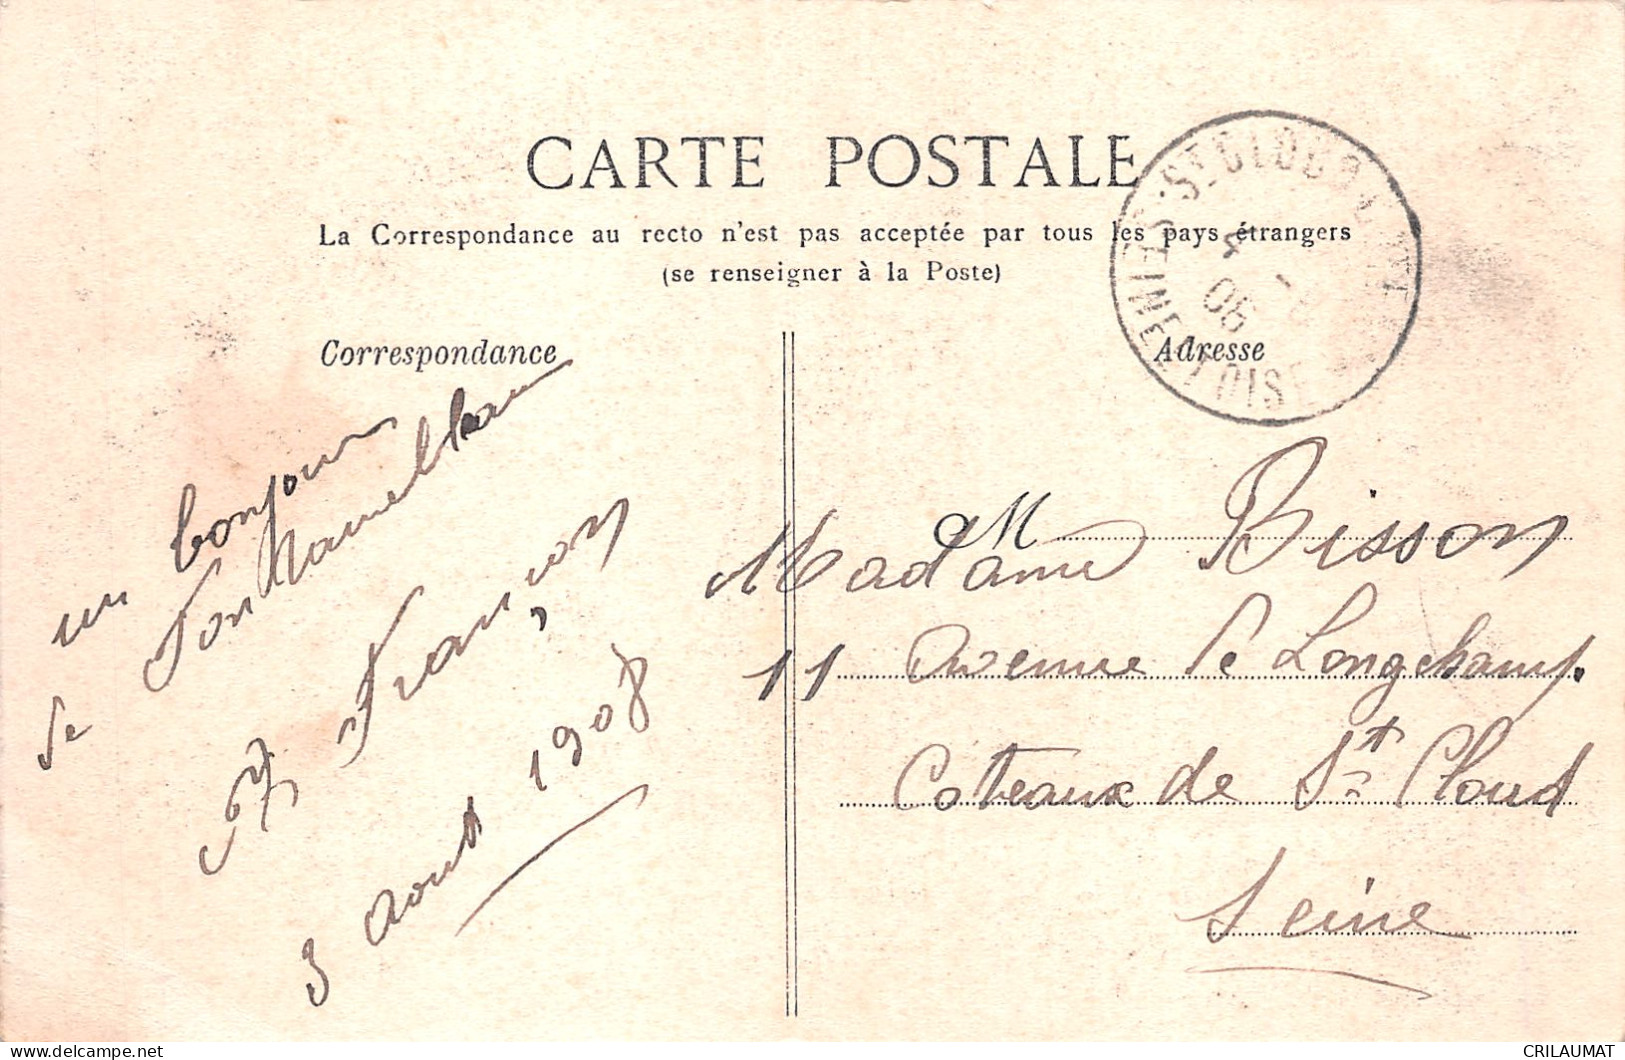 CARTE POSTALE
La Correspondance au recto n'est pas acceptée par tous les pays étrangers
(se renseigner à la Poste)
Correspondance
un bonjour
de Fontainebleau
Françon
3 Aout 1908
Adresse
ST CLOUD
SEINE ET OISE
4
08
M
Madame Bisson
11 Avenue de Longchamp.
Coteaux de St Cloud
Seine
delcampe.net
CRILAUMAT